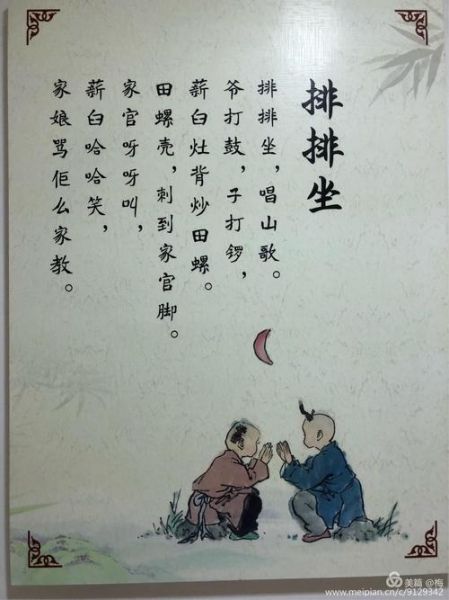 排排坐
排排坐，唱山歌。
爷打鼓，子打锣，
薪臼灶背炒田螺。
田螺壳，刺到家官脚。
家官呀呀叫，
薪臼哈哈笑，
家娘骂佢么家教。
美篇 @梅
www.meipian.cn/c/9129342